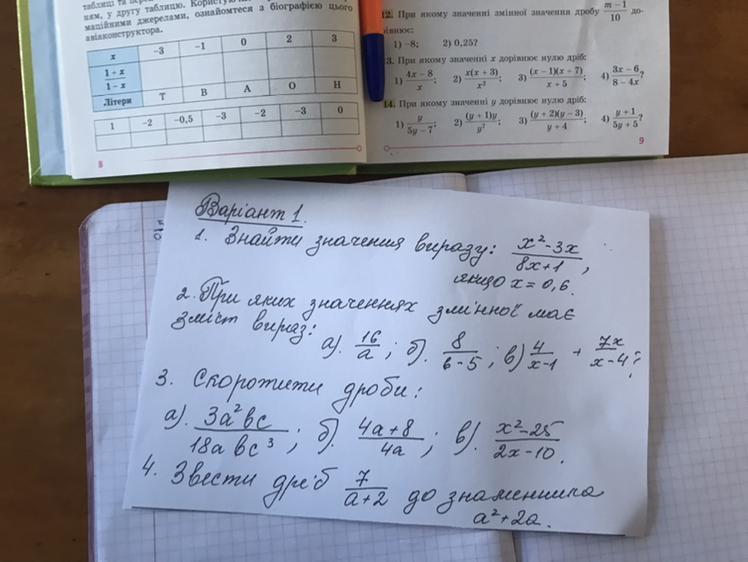 ням, у другу таблицю.
маційними джерелами, ознайомтеся з біографією цього
авіаконструктора.
x −3 −1 0 2 3
(1 + x)/(1 − x)
Літери Т В А О Н
1 −2 −0,5 −3 −2 −3 0
8
12. При якому значенні змінної значення дробу (m − 1)/10 до-
рівнює:
1) −8; 2) 0,25?
3. При якому значенні x дорівнює нулю дріб:
1) (4x − 8)/x; 2) x(x + 3)/x²; 3) (x − 1)(x + 7)/(x + 5); 4) (3x − 6)/(8 − 4x)?
14. При якому значенні y дорівнює нулю дріб:
1) y/(5y − 7); 2) (y + 1)y/y²; 3) (y + 2)(y − 3)/(y + 4); 4) (y + 1)/(5y + 5)?
9
Варіант 1.
1. Знайти значення виразу: (x² - 3x)/(8x + 1),
якщо x = 0,6.
2. При яких значеннях змінної має
зміст вираз:
а). 16/a; б). 8/(в - 5); в) 4/(x - 1) + 7x/(x - 4)?
3. Скоротити дроби:
а). 3a²вc/18aвc³; б). (4a + 8)/4a; в). (x² - 25)/(2x - 10).
4. Звести дріб 7/(a + 2) до знаменника
a² + 2a.